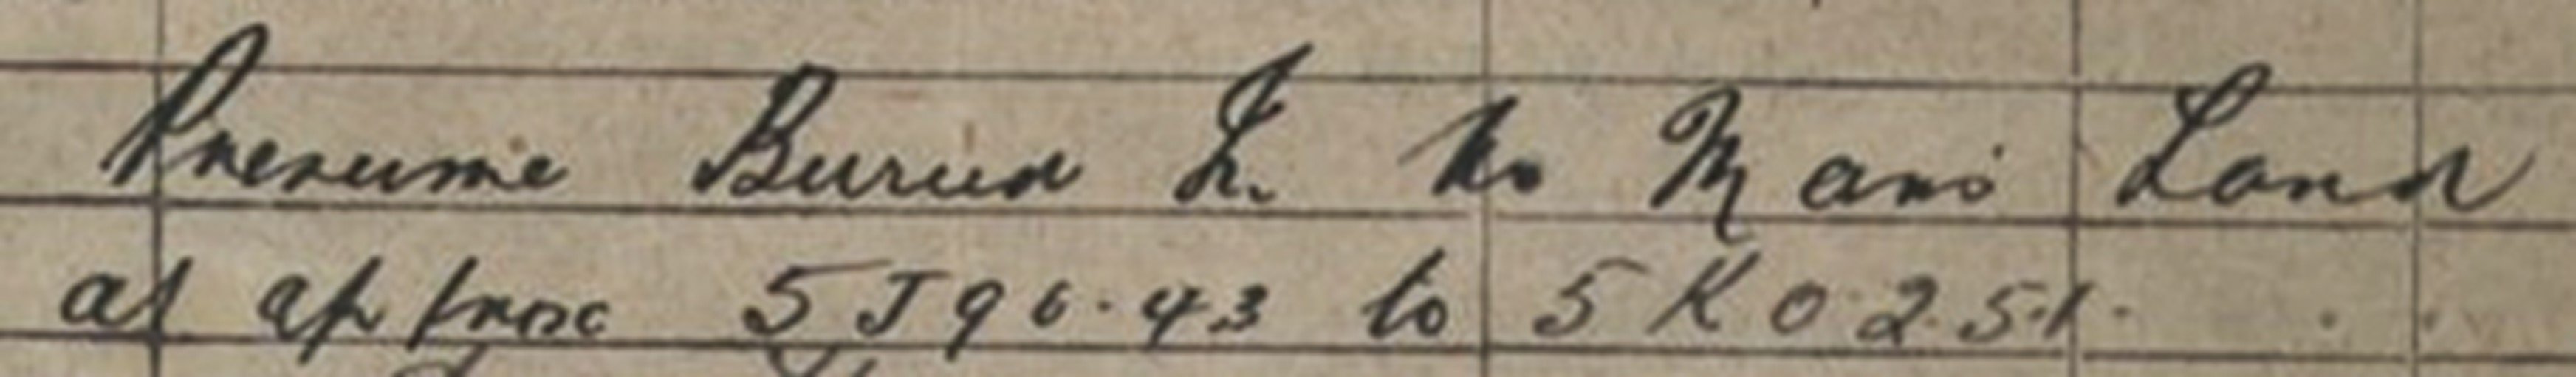 Presume Buried In No Mans Land
at approx 5 J 96.43 to 5 K 02.51.